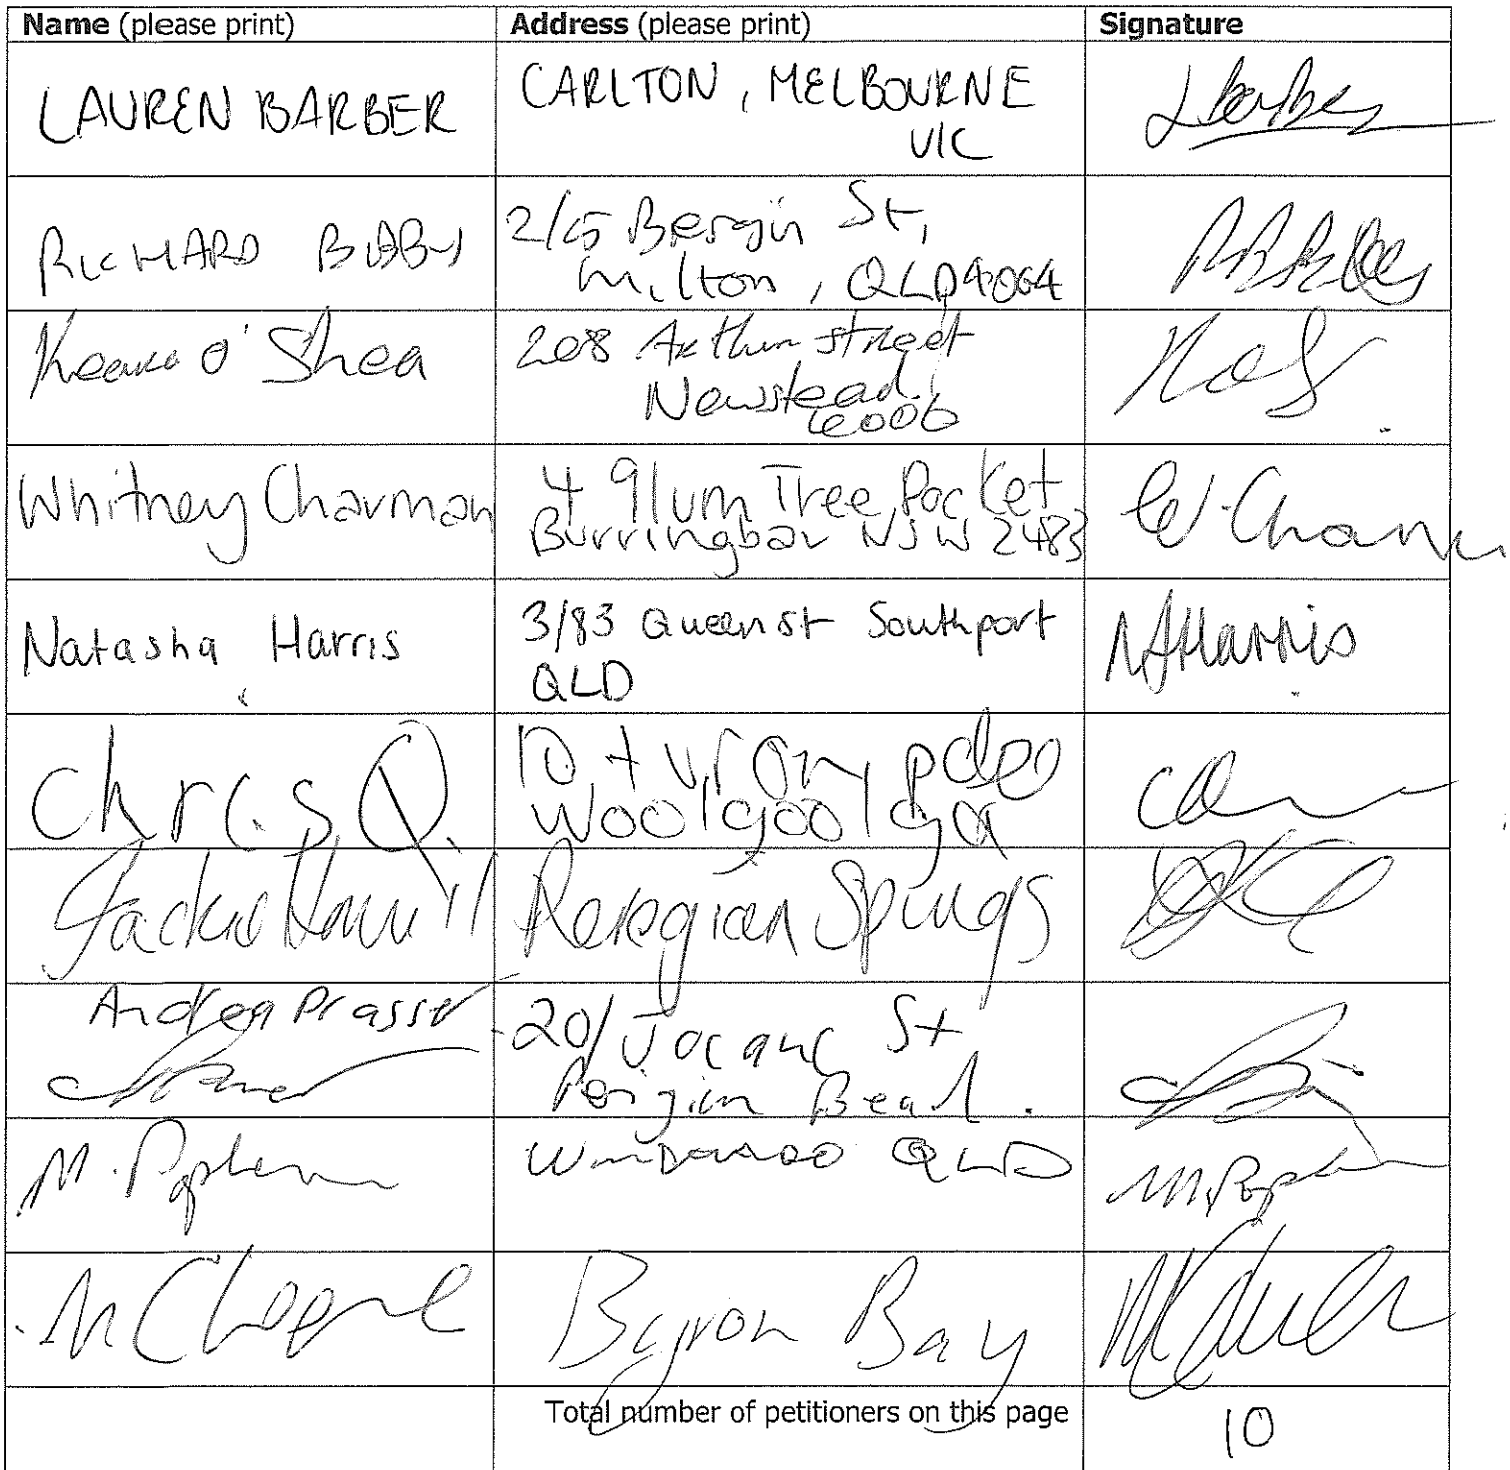 Name (please print) Address (please print) Signature
LAUREN BARBER CARLTON, MELBOURNE
VIC
RICHARD 2/15 Bergin St,
Milton, QLD 4064
O'Shea 208 Arthur street
Newstead
Whitney Charman 4 Plum Tree Pocket
Burringbar NSW 2483 W. Charman
Natasha Harris 3/83 Queen st Southport NHarris
QLD
Chris Q.
Woolgoolga
Jackie Peregian Springs
Andrea 20/ St
Beach.
M. QLD
M Byron Bay
Total number of petitioners on this page 10